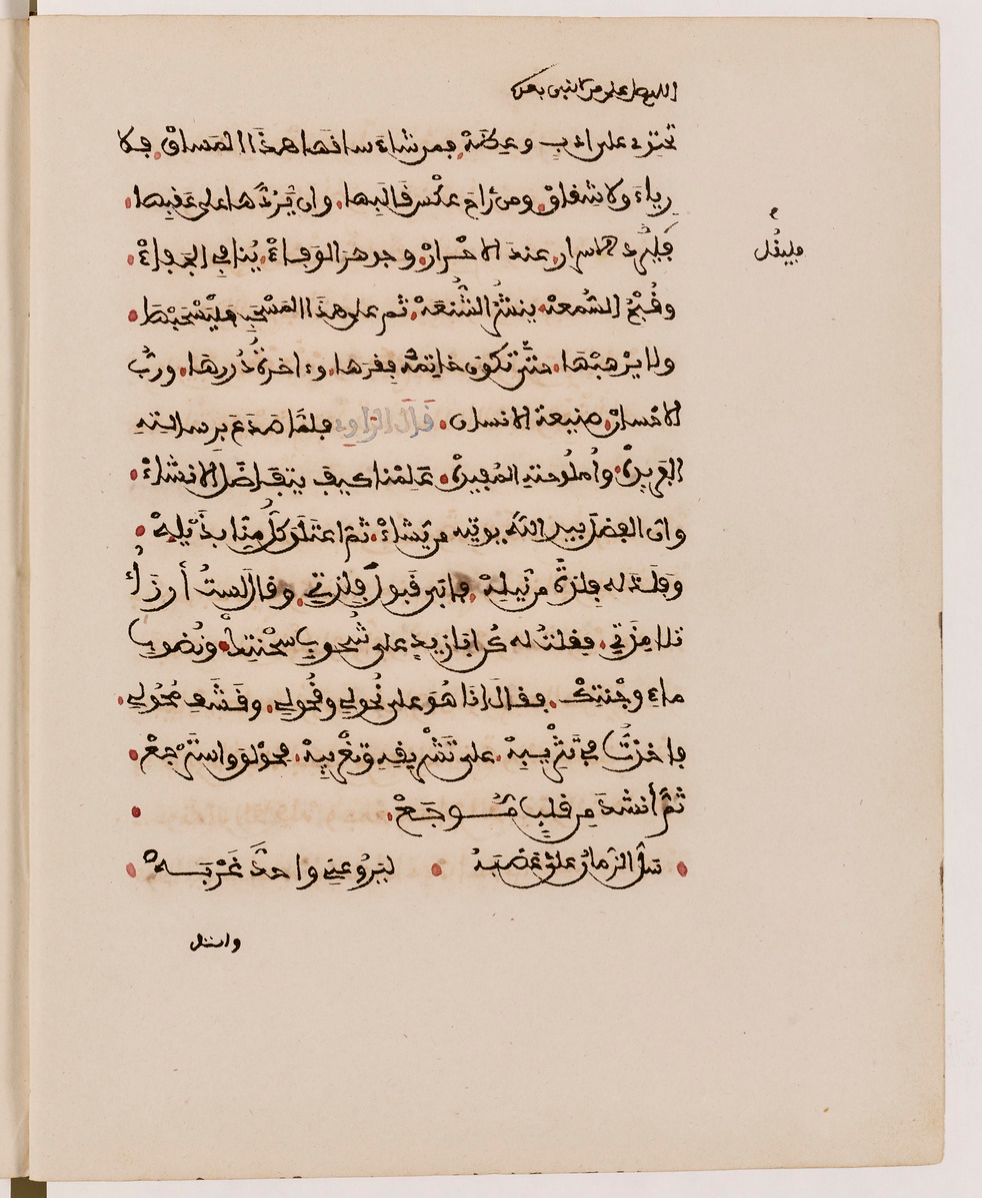 اللهم صل على من لا نبي بعده
تحتوي على ادب وعظة. فمن شاء ساقها هذا المساق. فلا
رياء ولا شقاق. ومن رام عكس قالبها. وان يردها على عقبها.
الاسرار. عند الاحرار. وجوهر الوفاء. ينافي الجفاء.
فليقل
وقبح السمعة. ينشر الشنعة. ثم على هذا المسحب فليسحبها
ولا يرهبها. حتى تكون خاتمة فقرها. وءاخرة دررها. ورب
الاحسان. صنيعة الانسان. قال الراوي فلما صدع برسالته
الفريدة. وأملوحته المفيدة. علمنا كيف يتفاضل الانشاء.
وان الفضل بيد الله يوتيه من يشاء. ثم اعتلق كل منا بذيله.
وفلذ له فلذة من نيله. فابى قبول فلذتي. وقال لست أرزأ
تلامذتي. فقلت له كن ابا زيد على شحوب سحنتك. ونضوب
ماء وجنتك. فقال انا هو على نحولي وقحولي. وقشف محولي.
فاخذت في تثريبه. على تشريقه وتغريبه. فحولق واسترجع.
ثم أنشد من قلب موجع.
سل الزمان علي عضبه ليروعني واحد غربه
واستل